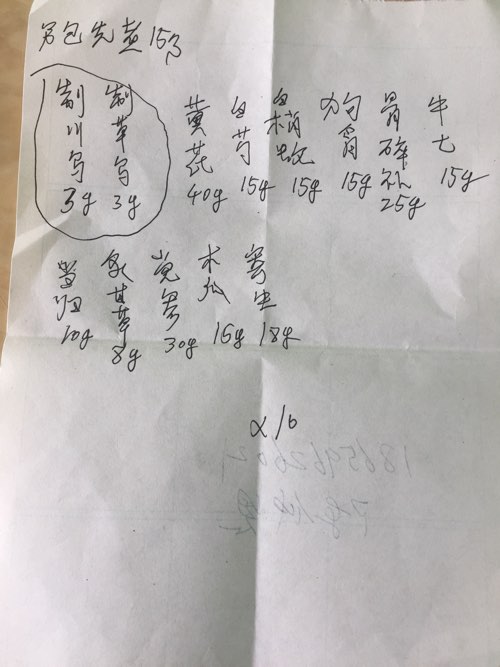 另包先煮15分
制川乌 3g
制草乌 3g
黄芪 40g
白芍 15g
乌梢蛇 15g
狗脊 15g
骨碎补 25g
牛七 15g
当归 10g
炙甘草 8g
党参 30g
木瓜 15g
寄生 18g